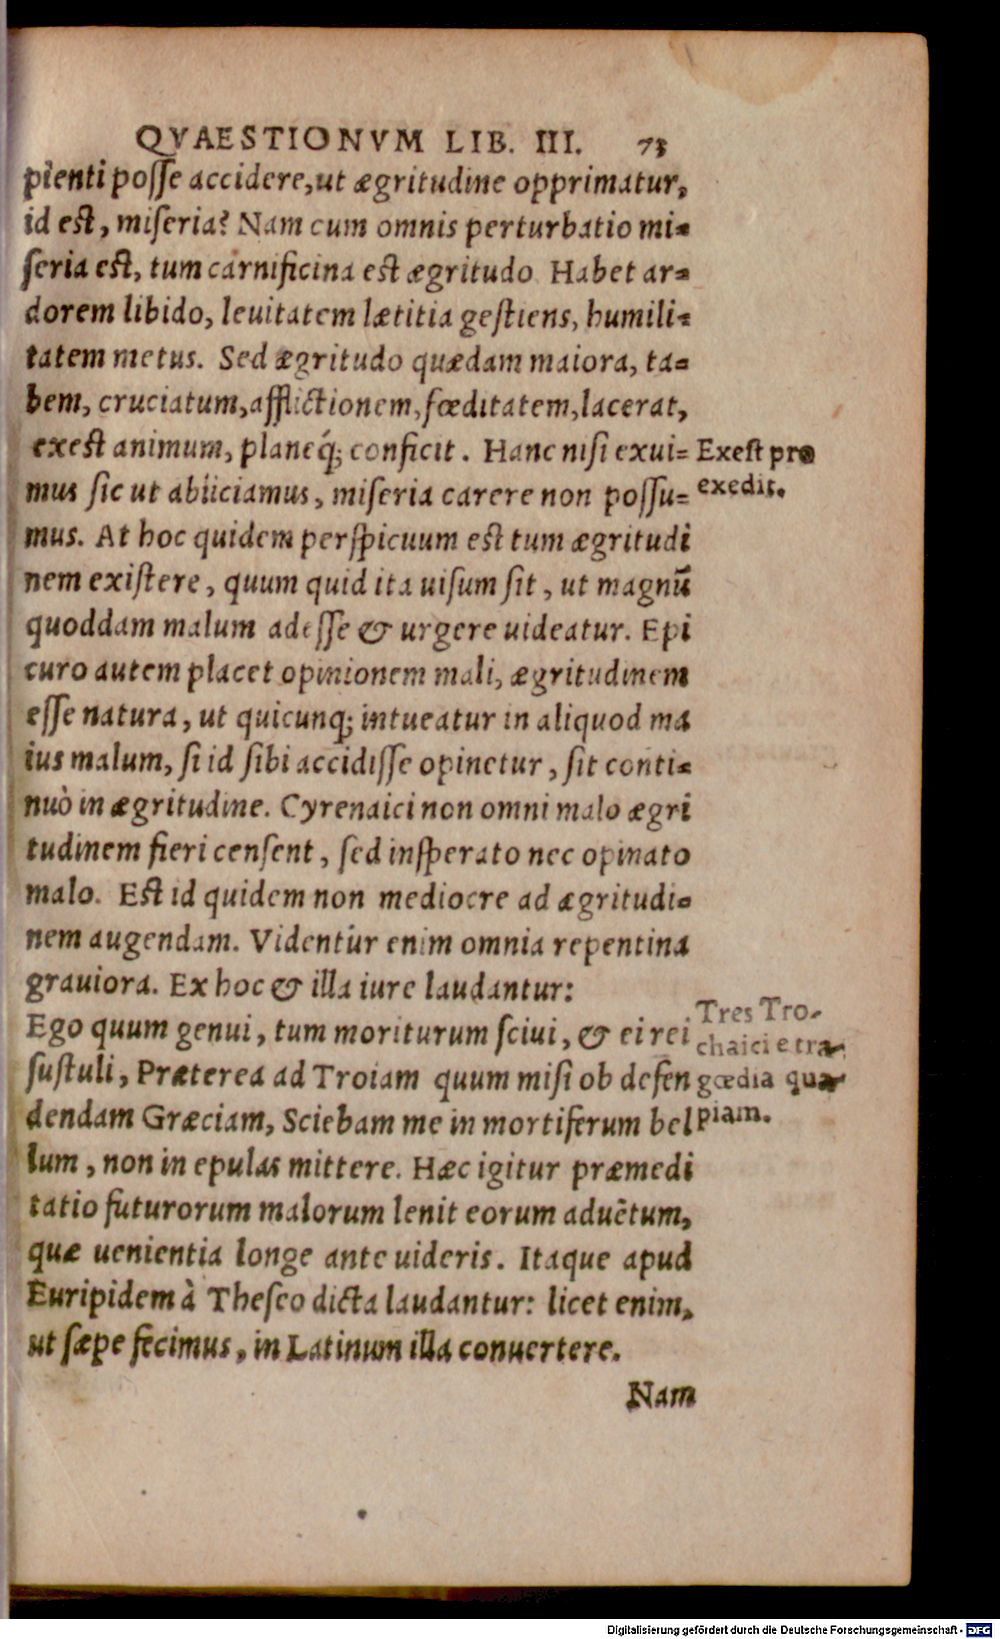 QVAESTIONVM LIB. III. 73
pienti posse accidere, ut ægritudine opprimatur,
id est, miseria? Nam cum omnis perturbatio mi-
seria est, tum carnificina est ægritudo. Habet ar-
dorem libido, leuitatem lætitia gestiens, humili-
tatem metus. Sed ægritudo quædam maiora, ta-
bem, cruciatum, afflictionem, fœditatem, lacerat,
exest animum, planeq́; conficit. Hanc nisi exui-
Exest pro
exedit.
mus sic ut abijciamus, miseria carere non possu-
mus. At hoc quidem perspicuum est tum ægritudi
nem existere, quum quid ita uisum sit, ut magnũ
quoddam malum adesse & urgere uideatur. Epi
curo autem placet opinionem mali, ægritudinem
esse natura, ut quicunq; intueatur in aliquod ma
ius malum, si id sibi accidisse opinetur, sit conti-
nuò in ægritudine. Cyrenaici non omni malo ægri
tudinem fieri censent, sed insperato nec opinato
malo. Est id quidem non mediocre ad ægritudi-
nem augendam. Videntur enim omnia repentina
grauiora. Ex hoc & illa iure laudantur:
Ego quum genui, tum moriturum sciui, & ei rei
Tres Tro-
chaici e tra-
gœdia qua-
piam.
sustuli, Præterea ad Troiam quum misi ob defen
dendam Græciam, Sciebam me in mortiferum bel
lum, non in epulas mittere. Hæc igitur præmedi
tatio futurorum malorum lenit eorum aduẽtum,
quæ uenientia longe ante uideris. Itaque apud
Euripidem à Theseo dicta laudantur: licet enim,
ut sæpe fecimus, in Latinum illa conuertere.
Nam
Digitalisierung gefördert durch die Deutsche Forschungsgemeinschaft - DFG